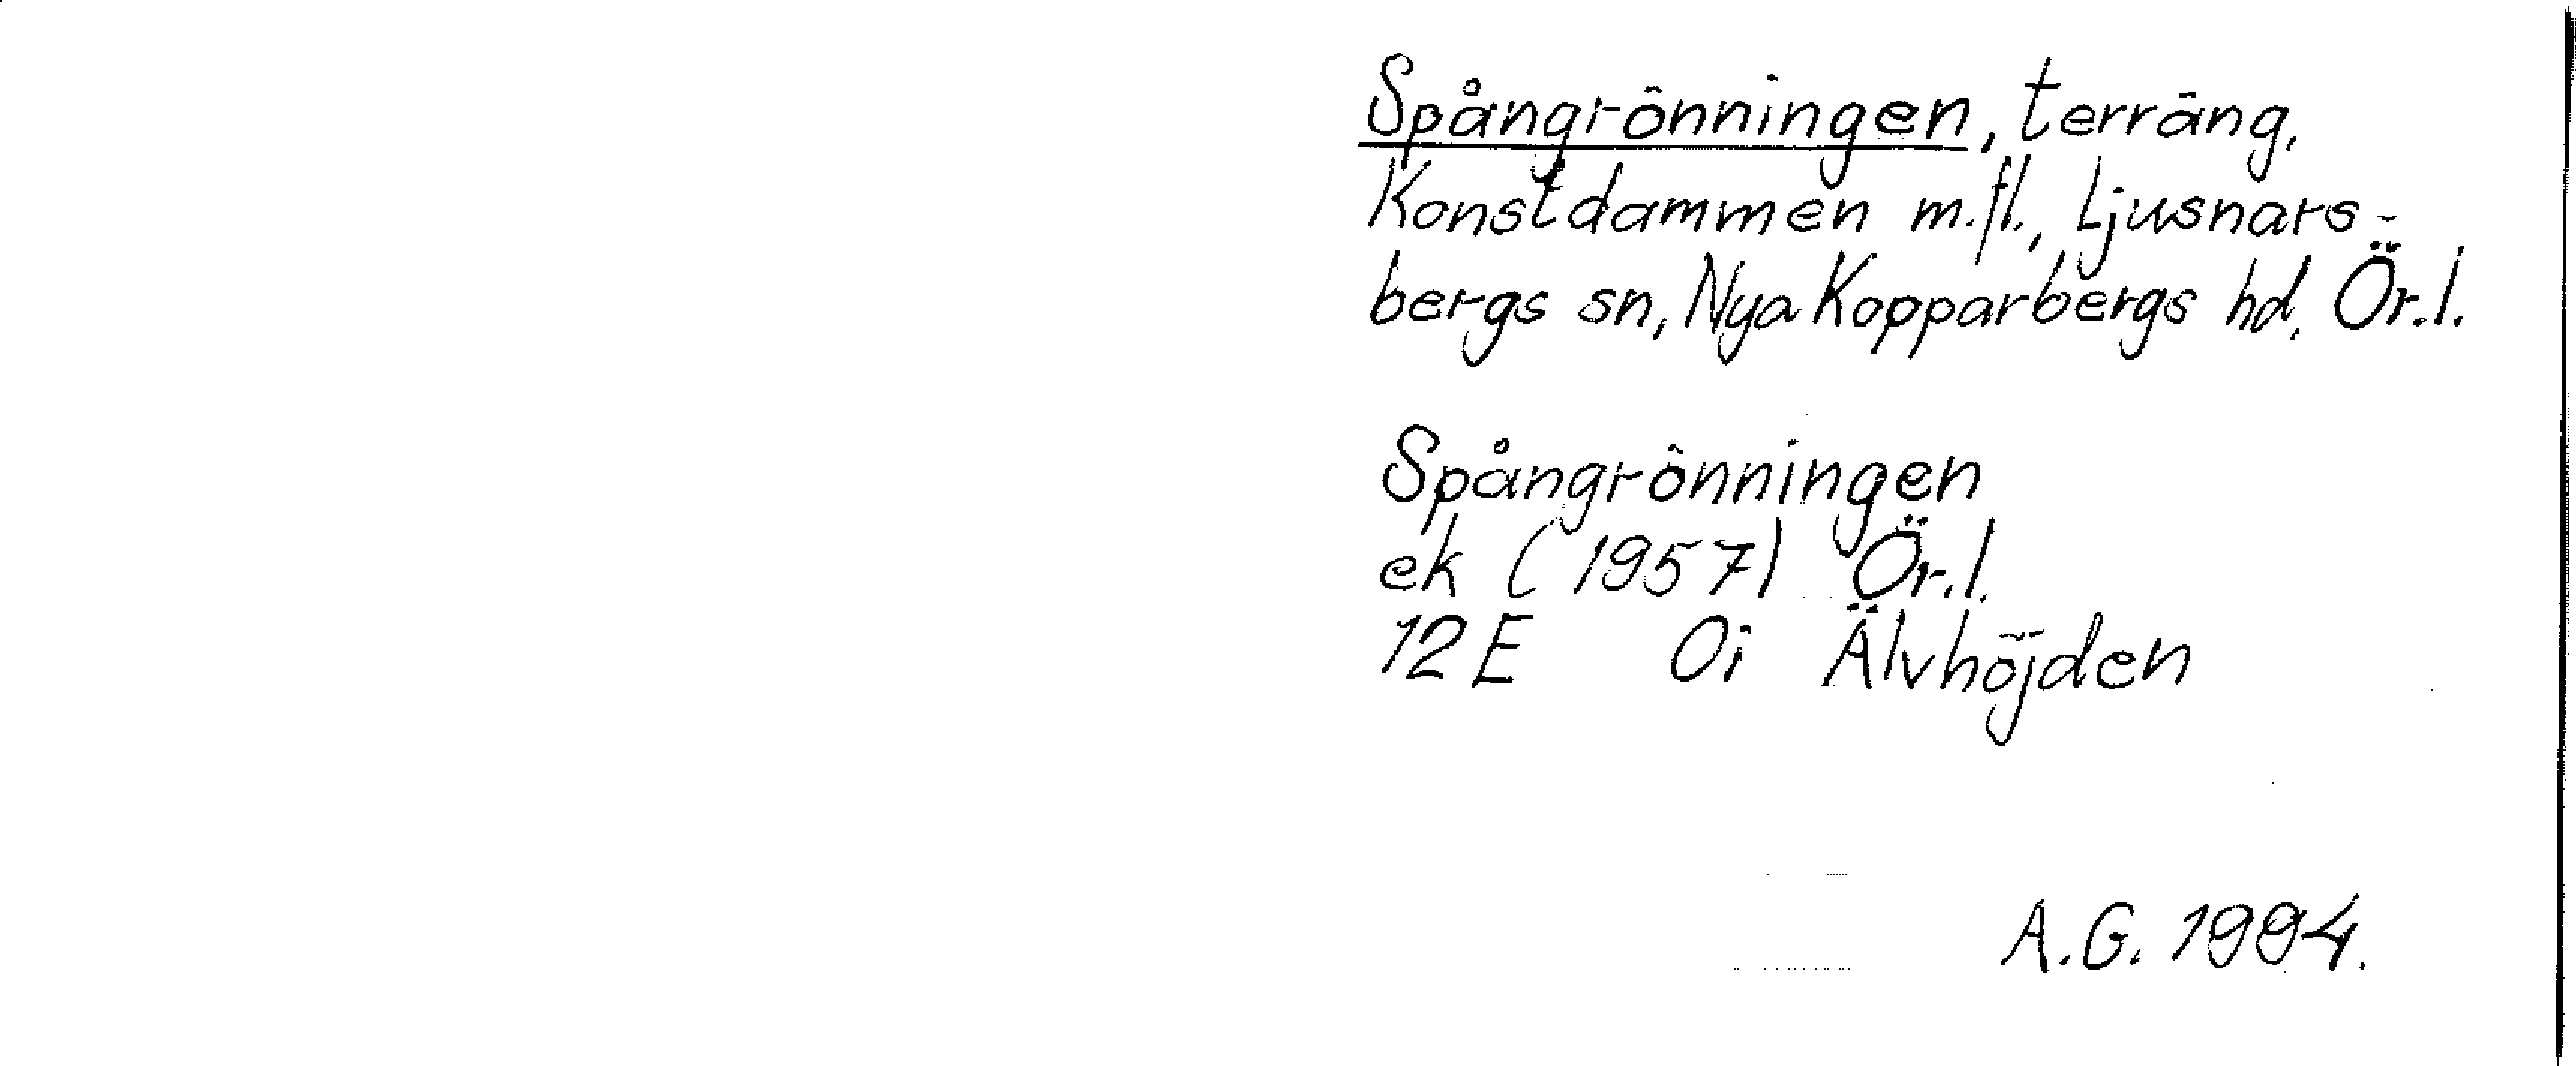 Spångrönningen, terräng,
Konstdammen m.fl., Ljusnars-
bergs sn, Nya Kopparbergs hd, Ör.l.
Spångrönningen
ek (1957) Ör.l.
12E 0i Älvhöjden
A.G. 1994.